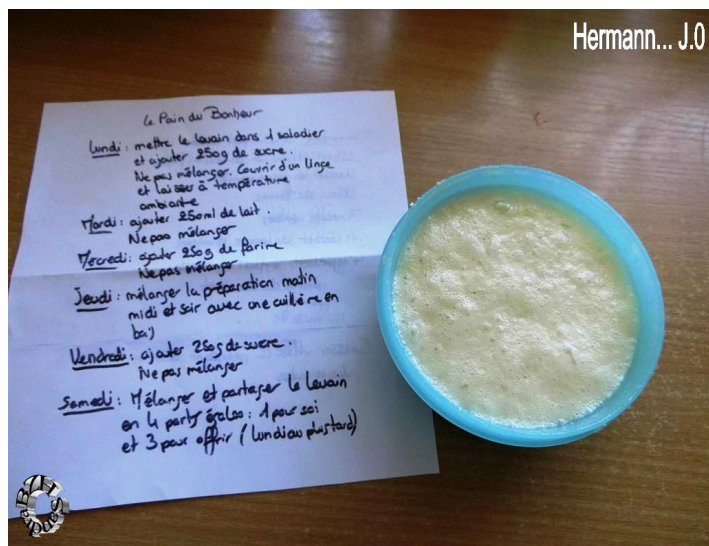 Hermann... J.0
Le Pain du Bonheur
Lundi : mettre le levain dans 1 saladier
et ajouter 250g de sucre.
Ne pas mélanger. Couvrir d'un linge
et laisser à température
ambiante
Mardi : ajouter 250ml de lait.
Ne pas mélanger
Mercredi : ajouter 250g de farine
Ne pas mélanger
Jeudi : mélanger la préparation matin
midi et soir avec une cuillère en
bois
Vendredi : ajouter 250g de sucre.
Ne pas mélanger
Samedi : Mélanger et partager le levain
en 4 parts égales : 1 pour soi
et 3 pour offrir (lundi au plus tard)